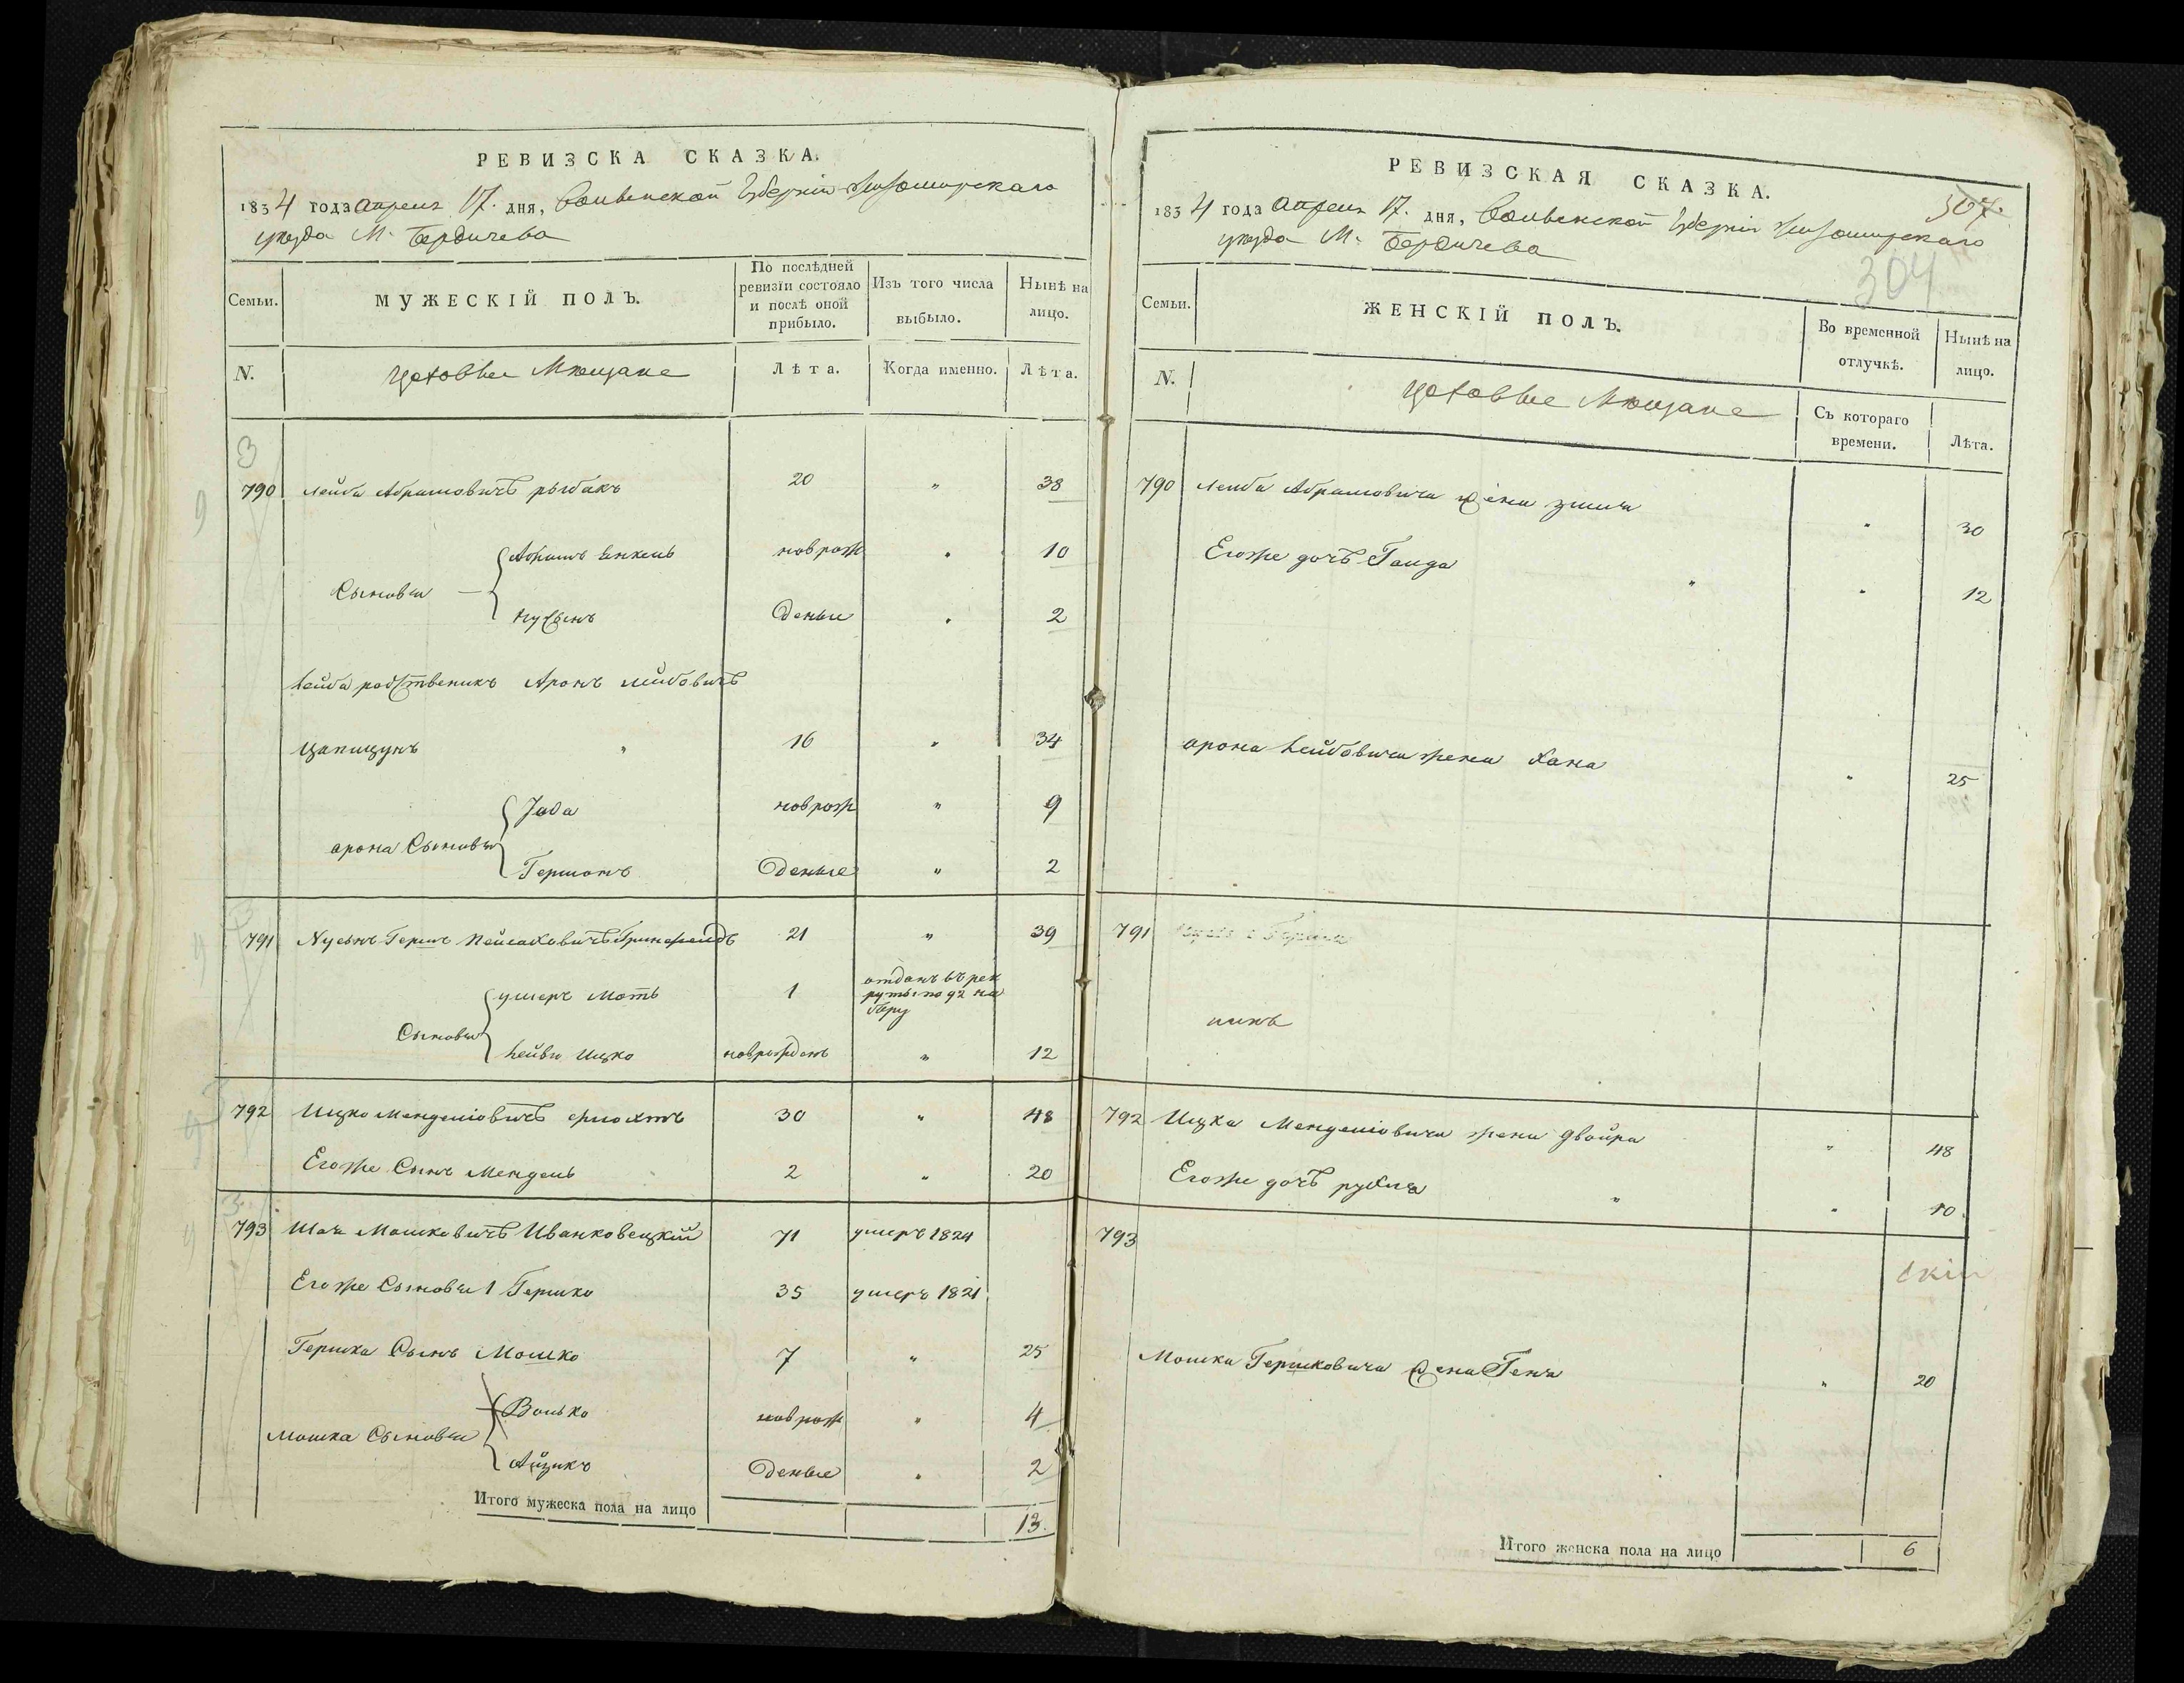 РЕВИЗСКА СКАЗКА.
1834 года Апреля 17. дня, Волынской Губерніи Житомирскаго
уезда М. Бердичева
Семьи.
МУЖЕСКІЙ ПОЛЪ.
По послѣдней
ревизіи состояло
и послѣ оной
прибыло.
Изъ того числа
выбыло.
Нынѣ на
лицо.
N.
Цеховые Мещане
Лѣта.
Когда именно.
Лѣта.
3
790 Лейба Абрамовичъ рыбакъ 20 " 38
Абрамъ Янкель новрож " 10
Сыновья
Нусынъ Деные " 2
Лейба родственикъ Аронъ Лейбовичъ
Цапищунъ " 16 " 34
новрож " 9
арона Сыновья
Гершонъ Деные " 2
791 Нусынъ Гершъ Пейсаховичъ 21 " 39
ушеръ Моть 1 отданъ въ рек
руты по 92 на
бору
Сыновья
Лейба Ицко новрожденъ " 12
792 Ицко Менделіовичъ 30 " 48
Егоже Сынъ Мендель 2 " 20
3
793 Шая Мошковичъ Иванковецкій 71 умеръ 1824
Егоже Сыновья 1 Гершко 35 умеръ 1821
Гершка Сынъ Мошко 7 " 25
Волько новрож " 4
Мошка Сыновья
Айзикъ Деные " 2
Итого мужеска пола на лицо 13.
РЕВИЗСКАЯ СКАЗКА.
307.
1834 года Апреля 17. дня, Волынской Губерніи Житомирскаго
уезда М. Бердичева
304
Семьи.
ЖЕНСКІЙ ПОЛЪ.
Во временной
отлучкѣ.
Нынѣ на
лицо.
N.
Цеховые Мещане
Съ котораго
времени.
Лѣта.
790 Лейба Абрамовича жена Злата " 30
Егоже дочъ Гандя " " 12
арона Лейбовича жена Хана " 25
791
792 Ицка Менделіовича жена Двойра " 48
Егоже дочъ рухля " " 10.
793
Мошка Гершковича жена Геня " 20
Итого женска пола на лицо 6